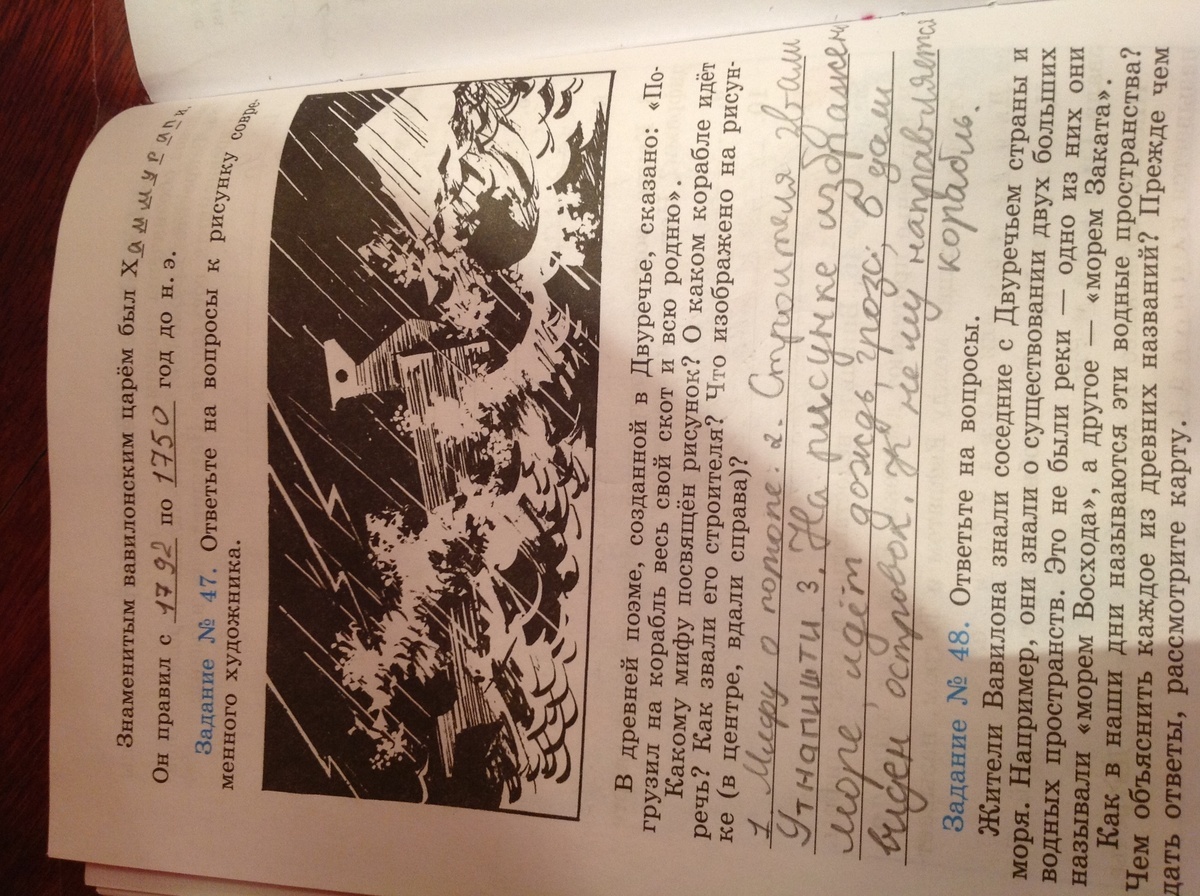 Знаменитым вавилонским царём был Хаммурапи.
Он правил с 1792 по 1750 год до н. э.
Задание № 47. Ответьте на вопросы к рисунку совре-
менного художника.
В древней поэме, созданной в Двуречье, сказано: «По-
грузил на корабль весь свой скот и всю родню».
Какому мифу посвящён рисунок? О каком корабле идёт
речь? Как звали его строителя? Что изображено на рисун-
ке (в центре, вдали справа)?
1 Мифу о потопе. 2. Строителя звали
Утнапишти 3. На рисунке изображено
море, идёт дождь, гроза; в дали
виден островок. К нему направляется
корабль.
Задание № 48. Ответьте на вопросы.
Жители Вавилона знали соседние с Двуречьем страны и
моря. Например, они знали о существовании двух больших
водных пространств. Это не были реки — одно из них они
называли «морем Восхода», а другое — «морем Заката».
Как в наши дни называются эти водные пространства?
Чем объяснить каждое из древних названий? Прежде чем
дать ответы, рассмотрите карту.